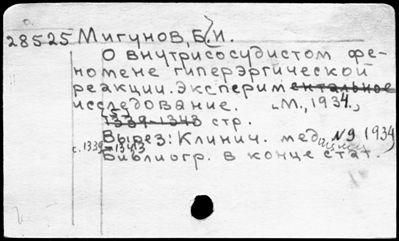 28525 Мигунов, Б. И.
О внутрисосудистом фе-
номене гиперэргической
реакции. Экспериментальное
исследование. М., 1934.,
1339-1343 стр.
Вырез: Клинич. мед., №9 1934
с. 1339-1343
Библиогр. в конце стат.